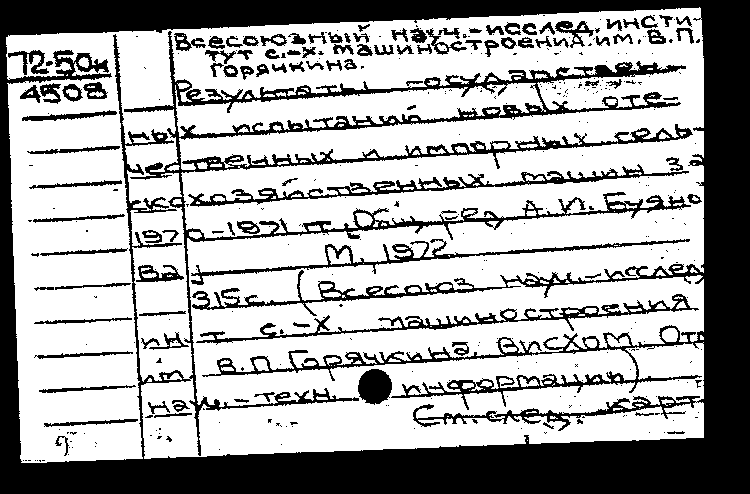 Всесоюзный науч.-исслед. инсти-
тут с.-х. машиностроения им. В.П.
Горячкина.
72-50к
4508
Результаты государствен-
ных испытаний новых оте-
чественных и импортных сель-
скохозяйственных машин за
1970-1971 гг. Общ. ред. А. И. Буяно
ва.
М., 1972.
315с. (Всесоюз науч.-исслед
ин.-т с.-х. машиностроения
им. В.П. Горячкина. ВИСХОМ. Отд
науч.-техн. информации)
См. след. карт